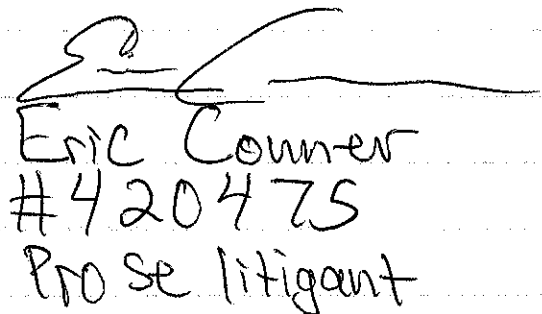 Eric Conner
#420475
Pro se litigant